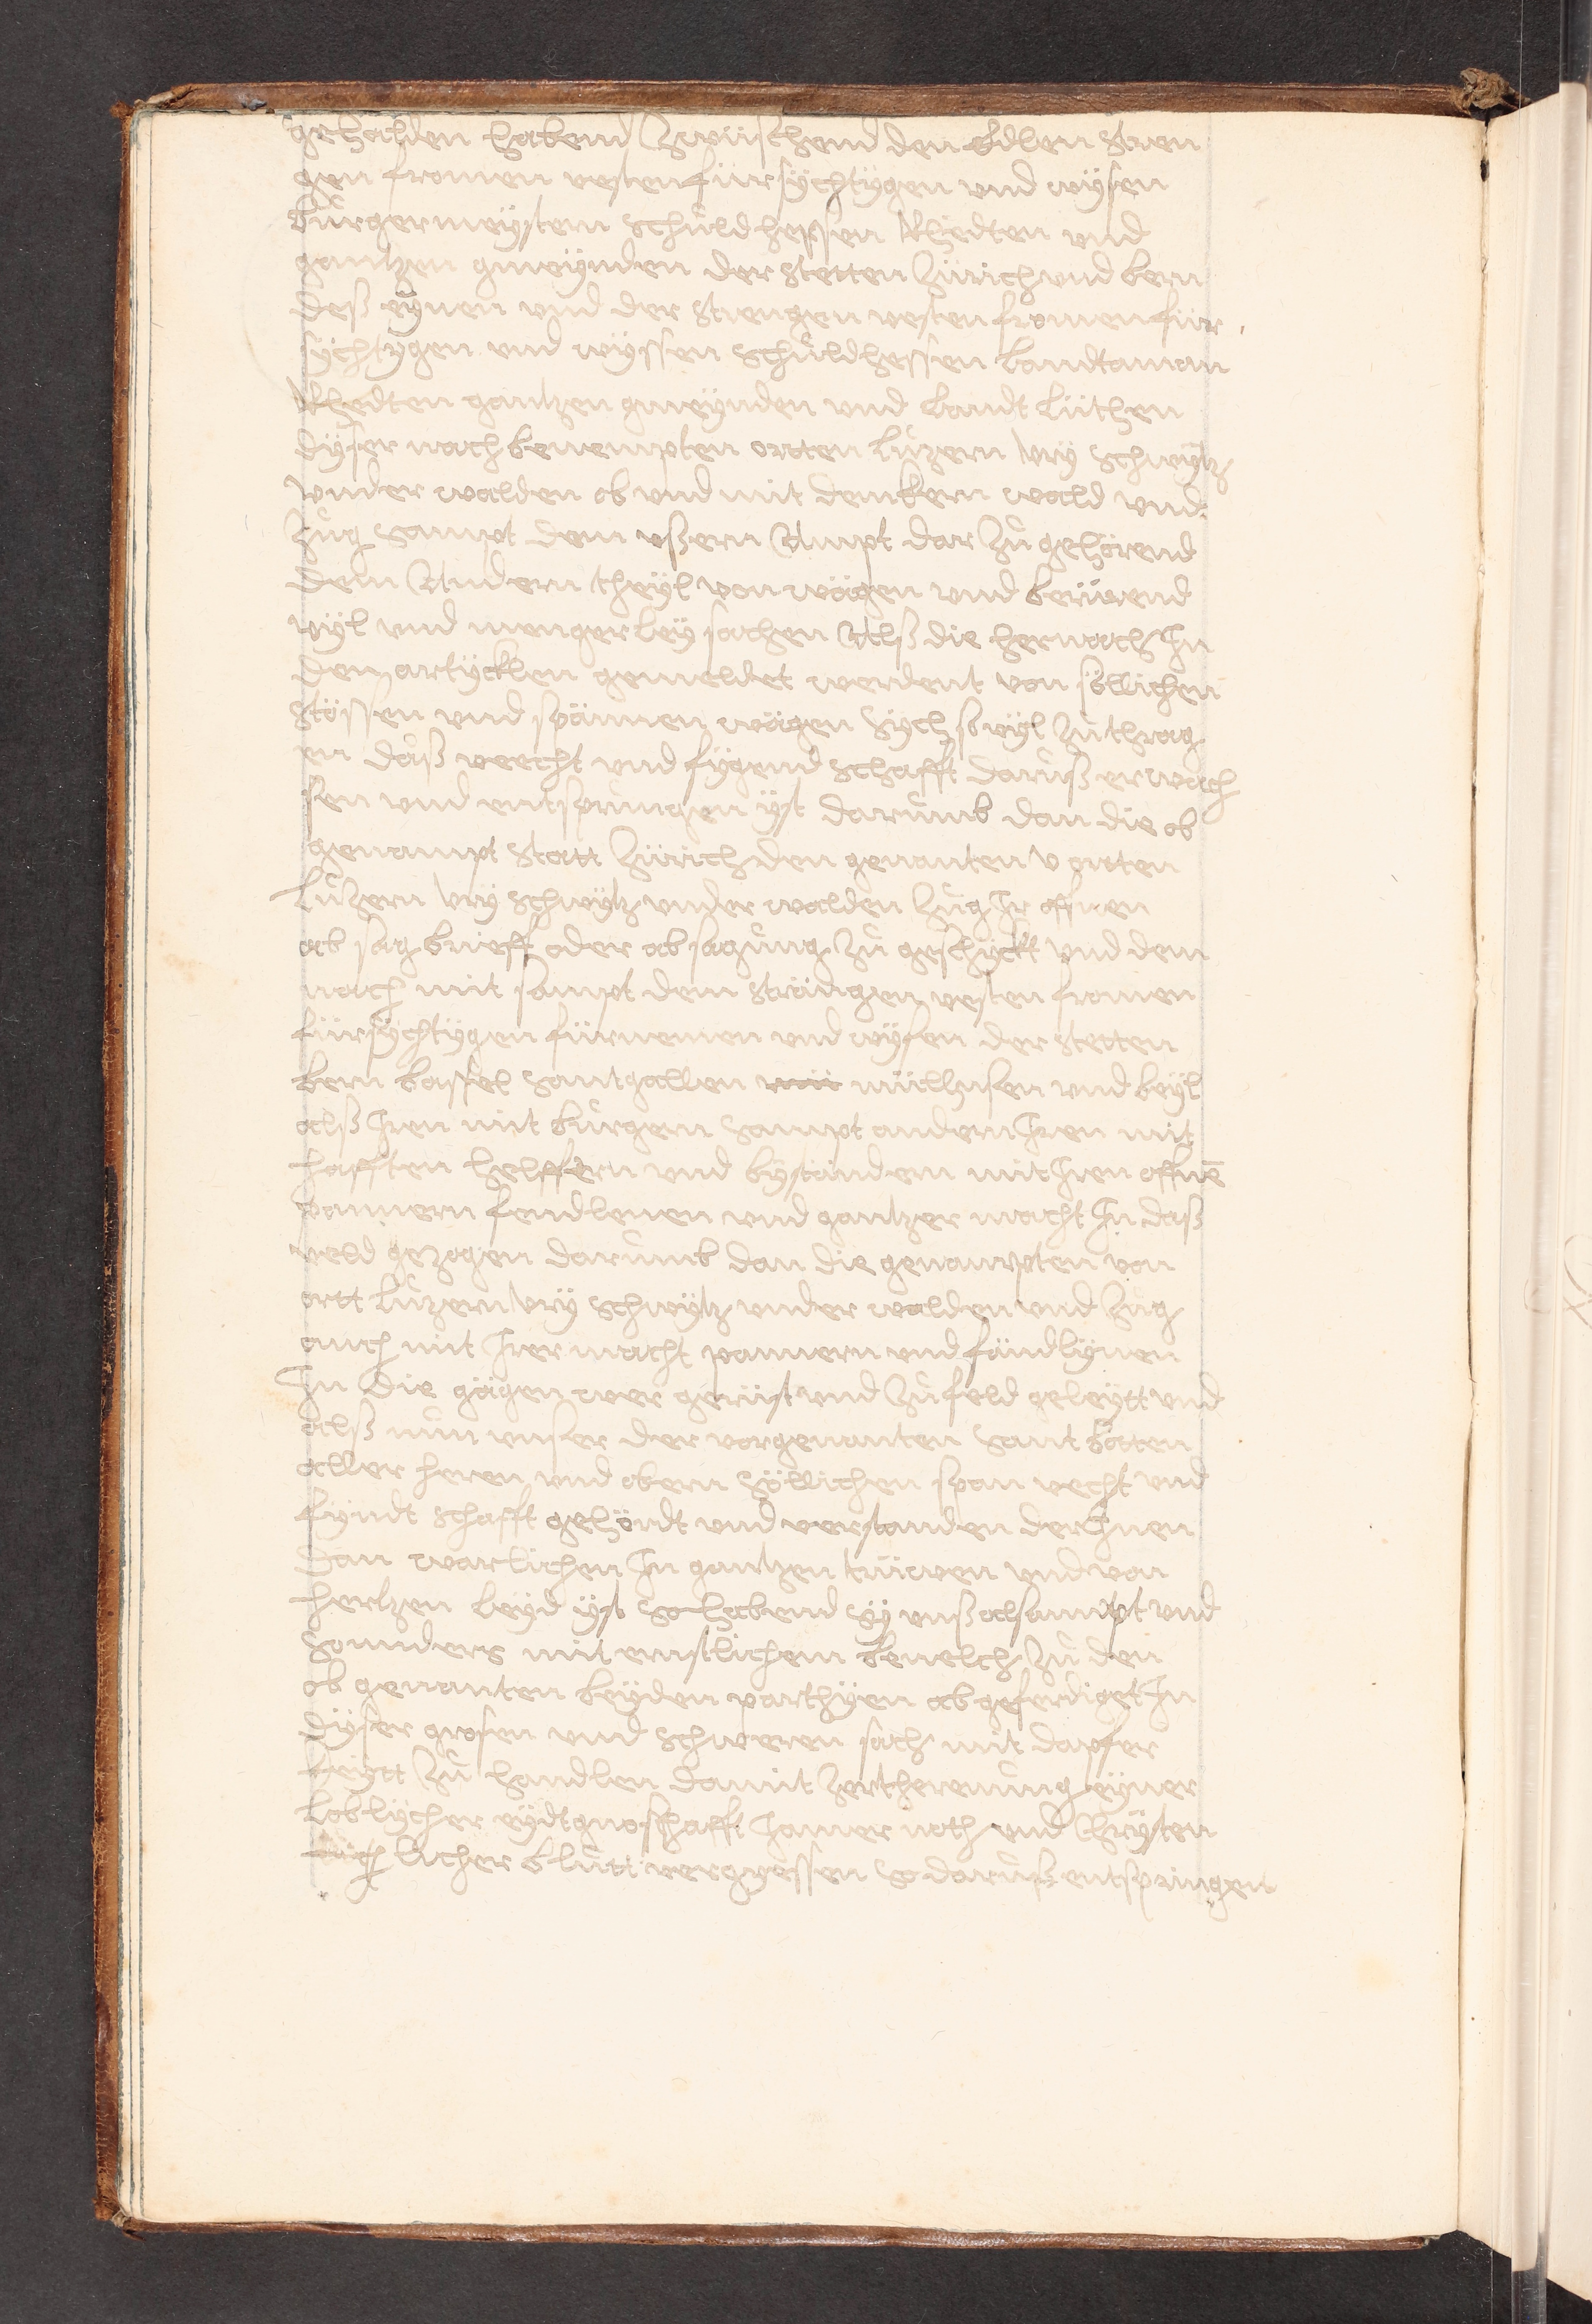 gehalden habend Zwüschend den Edlen Stren
gen fromen vesten fürsÿchtÿgen vnd wÿsen
bůrgermeÿstern Schůldhessen Rhedten vnd
gantzen gmeÿnden der Stetten Zürich vnd bern
deß eÿnen vnd der Strengen vesten fromen für
sÿchtÿgen vnd wÿssen Schůldhessen landtaman
Rhedten gantzen gmeÿnden vnd landt lüthen
dÿser nach benempten ortten lůzern Vrÿ Schwÿtz
vnder walden ob vnd nit dem kern wald vnd
Zůg Sampt dem vßern Ampt dar Zů gehörend
dem Andern theÿl von wägen vnd berürend
vÿl vnd mengerleÿ sachen Alß die hernach In
den artÿcklen gemeldet werdent von söllichen
Stössen vnd spännen wägen Sÿch so vÿl Zů thrag
en daß veecht vnd fÿgend Schafft daruß erwach
sen vnd entsprůngen ÿst darůmb dan die ob
genampt Statt Zürich den genanten V ortten
Lůzern Vrÿ Schwÿtz vnder walden Zůg Ir offnen
ab sag brieff oder ab sagůng Zů geschÿckt vnd dem
nach mit sampt dem Strängen vesten fromen
fürsÿchtÿgen fürnemen vnd wÿsen der Stetten
bern bassel Santgallen müllhusen vnd beÿl
alß Iren mit bůrgern Sampt andern Iren mit
hafften helffern vnd bÿständern mit Iren offnē
bannern fendlenen vnd gantzer macht In daß
veld gezogen darůmb dan die genampten von
ortt lůzern Vrÿ Schwÿtz vnder walden vnd Zůg
auch mit Irer macht pannern vnd fändlÿnen
In die gägen wer gerüst vnd Zů feld geleÿtt vnd
alß nůn vnser der vorgenanten Sant botten
aller heren vnd obern Söllichen span vecht vnd
fÿndt Schafft gehördt vnd verstanden der Inen
dan warlichen In gantzen trüwen vnd von
hertzen leÿd ÿst So habend Sÿ vnß alsampt vnd
Sonnders mit ernstlichem beuelch Zů den
ob genanten beÿden parthÿen ab geferdiget In
dÿser grosen vnd Schweren sach mit dapfer
keÿtt Zů handlen damit Zerthrenung eÿner
loblÿcher eÿdtgnoschafft Iamer noth vnd Chrÿsten
licher blůtt vergyessen So daruß entspringen